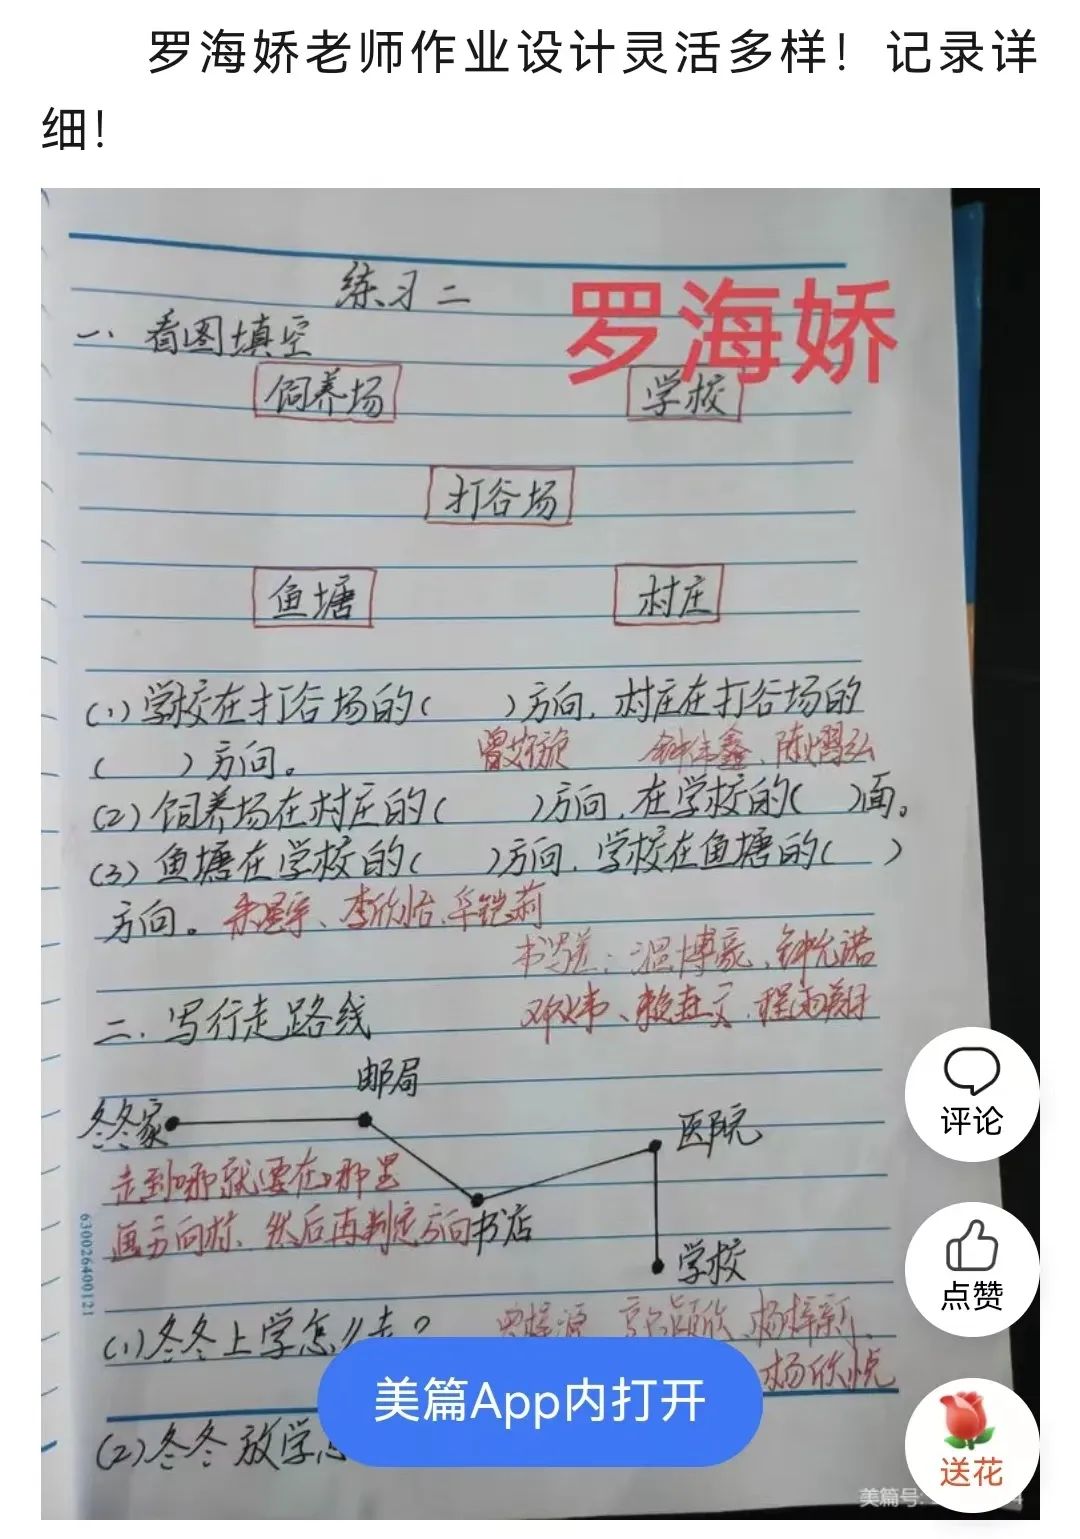 罗海娇老师作业设计灵活多样！记录详
细！
练习二
罗海娇
一、看图填空
饲养场
学校
打谷场
鱼塘
村庄
(1)学校在打谷场的( )方向,村庄在打谷场的
( )方向。
钟伟鑫、陈熠弘
(2)饲养场在村庄的( )方向,在学校的( )面。
(3)鱼塘在学校的( )方向,学校在鱼塘的( )
方向。 李欣怡、
温博豪、钟允诺
二.写行走路线
邮局
冬冬家
医院
走到哪就要在哪里
画方向标、然后再判定方向
书店
学校
630026400121
(1)冬冬上学怎么走?
杨梓新、
杨欣悦
(2)冬冬放学怎
评论
点赞
送花
美篇App内打开
美篇号: